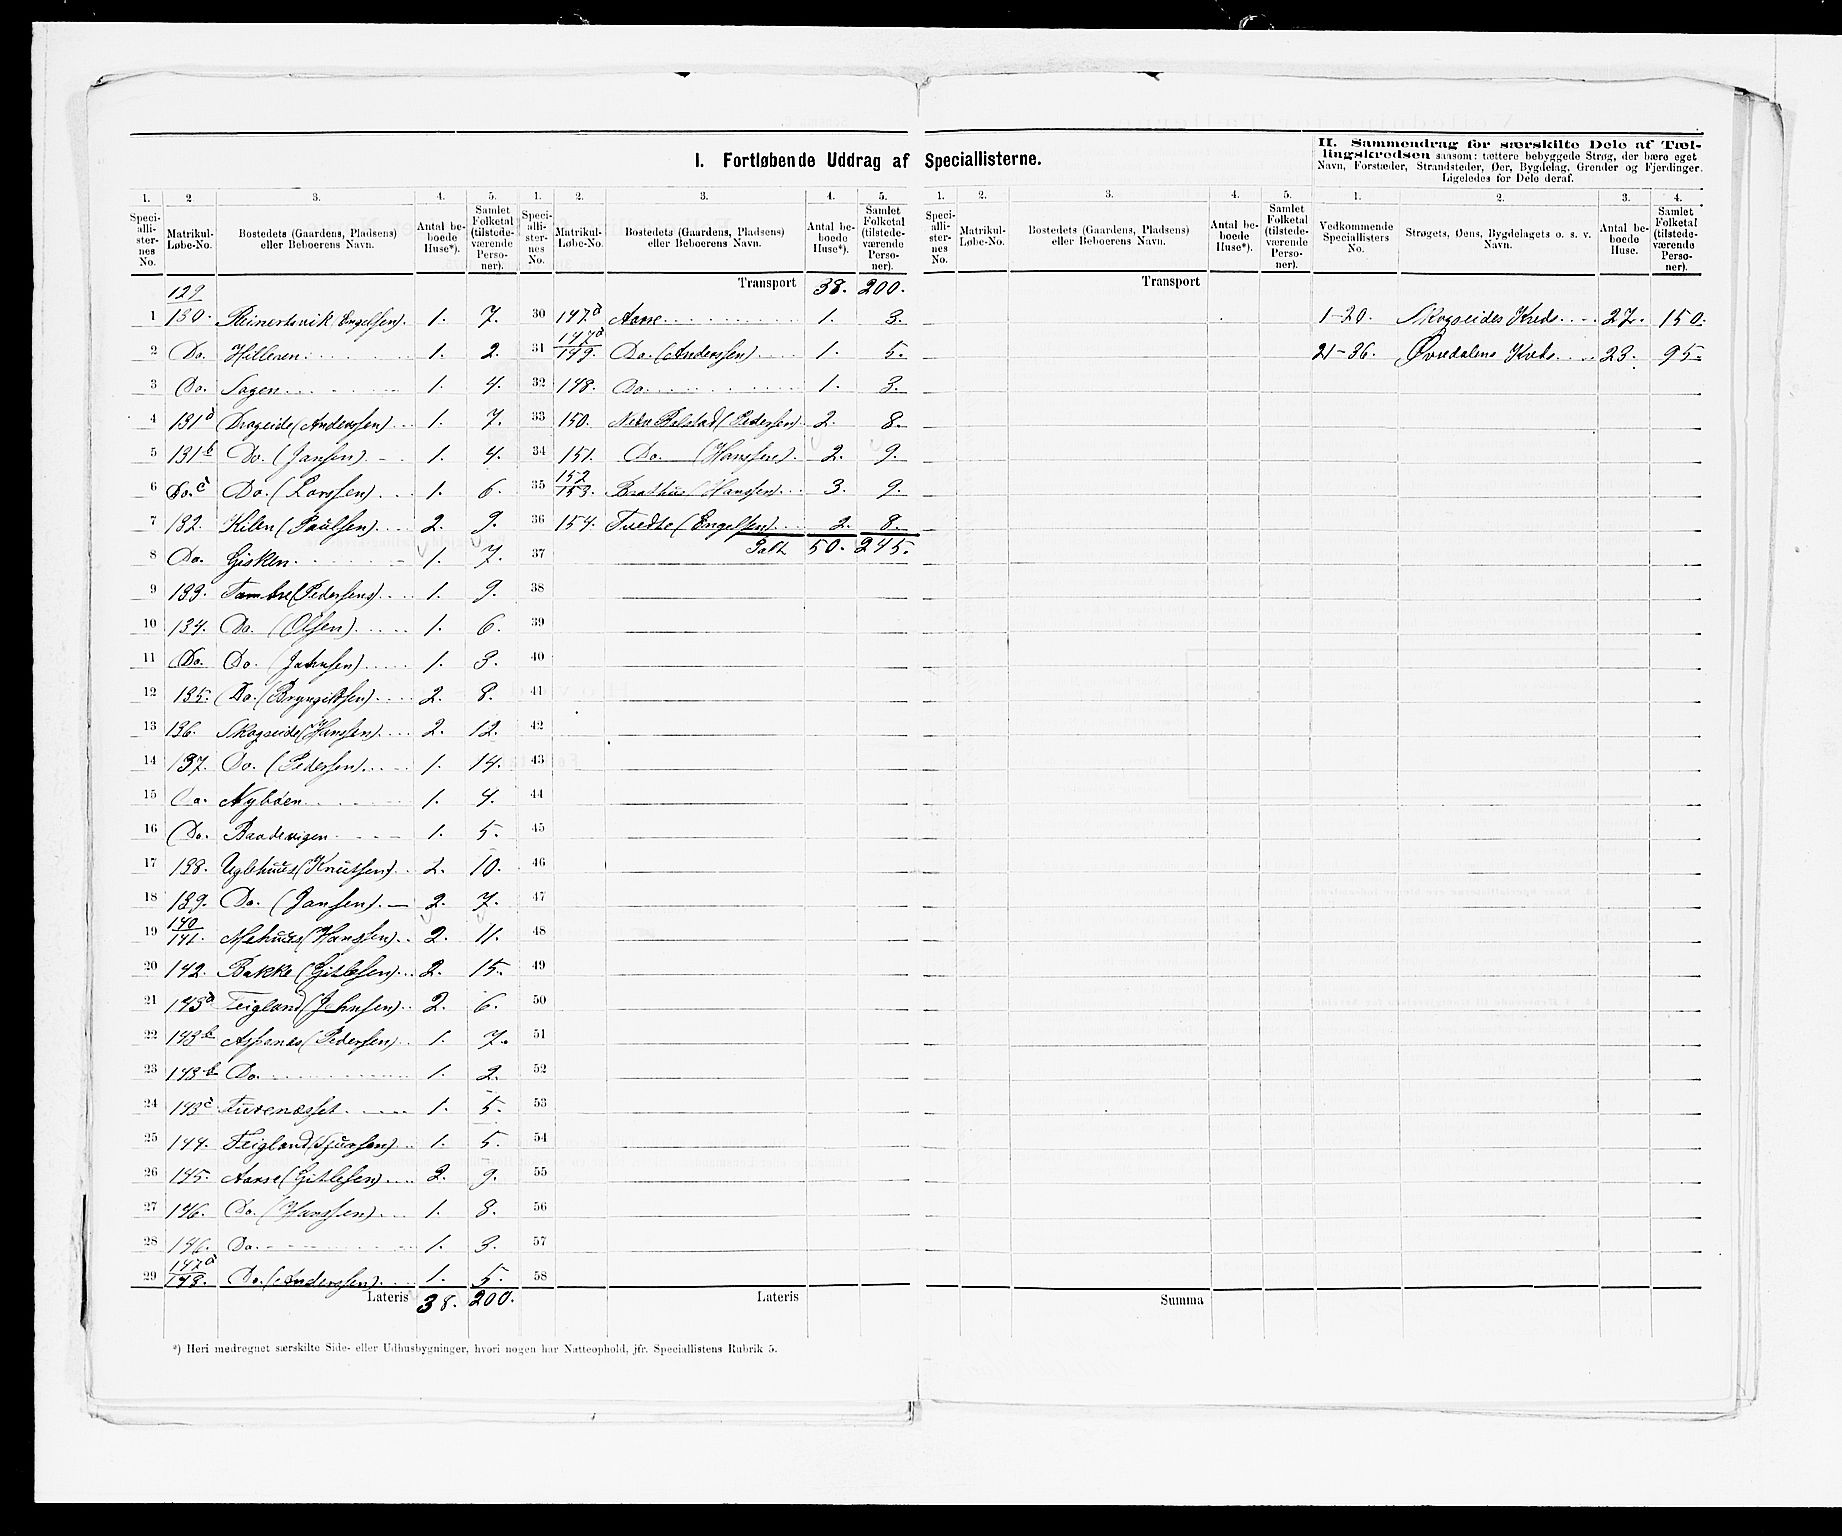 I. Fortløbende Uddrag af Speciallisterne.
II. Sammendrag for særskilte Dele af Tæl-
lingskredsen saasom: tættere bebyggede Strøg, der bære eget
Navn, Forstæder, Strandsteder, Øer, Bygdelag, Grender og Fjerdinger.
Ligeledes for Dele deraf.
1. 2 3. 4. 5. 1. 2. 3. 4. 5. 1. 2. 3. 4. 5. 1. 2. 3. 4.
Speci-alli-ster-nes No. Matrikul-Løbe-No. Bostedets (Gaardens, Pladsens) eller Beboerens Navn. Antal be-boede Huse*). Samlet Folketal (tilstede-værende Perso-ner).
Speci-alli-ster-nes No. Matrikul-Løbe-No. Bostedets (Gaardens, Pladsens) eller Beboerens Navn. Antal be-boede Huse*). Samlet Folketal (tilstede-værende Perso-ner).
Speci-alli-ster-nes No. Matrikul-Løbe-No. Bostedets (Gaardens, Pladsens) eller Beboerens Navn. Antal be-boede Huse*). Samlet Folketal (tilstede-værende Perso-ner).
Vedkommende Speciallisters No. Strøgets, Øens, Bygdelagets o. s. v. Navn. Antal be-boede Huse. Samlet Folketal (tilstede-værende Perso-ner).
1 129/130. Reinertsvik (Engelsen). 1. 7.
2 Do. Hilleren 1. 2.
3 Do. Hagen 1. 4.
4 131a Drageide (Anderssen) 1. 7.
5 131b Do. (Janssen) 1. 4.
6 Do.c Do. (Larssen) 1. 6.
7 132. Kilen (Paulsen) 2. 9.
8 Do. Gisken 1. 7.
9 133. Tombre (Pederssens) 1. 9.
10 134. Do. (Olsen) 1. 6.
11 Do. Do. (Johnsen) 1. 3.
12 135. Do. (Bryngelssen) 2. 8.
13 136. Skogseide (Hanssen) 2. 12.
14 137. Do. (Pederssen) 1. 14.
15 Do. Nybøen 1. 4.
16 Do. Baadevigen 1. 5.
17 138. Uglehuus (Knutssen) 2. 10.
18 139. Do. (Janssen) 2. 7.
19 140/141. Mehuus (Hanssen) 2. 11.
20 142. Bakke (Gitlesen) 2. 15.
21 143a Teigland (Johnsen) 2. 6.
22 143b Aspenæs (Pederssen) 1. 7.
23 143b Do. 1. 2.
24 143c Furenæsset 1. 5.
25 144. Teigland (Sjurssen) 1. 5.
26 145. Aarse (Gitlesen) 2. 9.
27 146. Do. (Hanssen) 1. 8.
28 146. Do. 1. 3.
29 147a/148. Do. (Anderssen) 1. 5.
Lateris 38. 200.
Transport 38. 200.
30 147a Aarse 1. 3.
31 147a/149. Do. (Anderssen) 1. 5.
32 148. Do. 1. 3.
33 150. Nedre (Pederssen) 2. 8.
34 151. Do. (Hanssen) 2. 9.
35 152/153. Brathus (Hanssen) 3. 9.
36 154. Tvedte (Engelssen) 2. 8.
37 50. 245.
38
39
40
41
42
43
44
45
46
47
48
49
50
51
52
53
54
55
56
57
58
Lateris
Transport
Summa
1-20. Skogseides Kreds 27. 150.
21-36. Øvredalens Kreds 23. 95.
*) Heri medregnet særskilte Side- eller Udhusbygninger, hvori nogen har Natteophold, jfr. Speciallistens Rubrik 5.